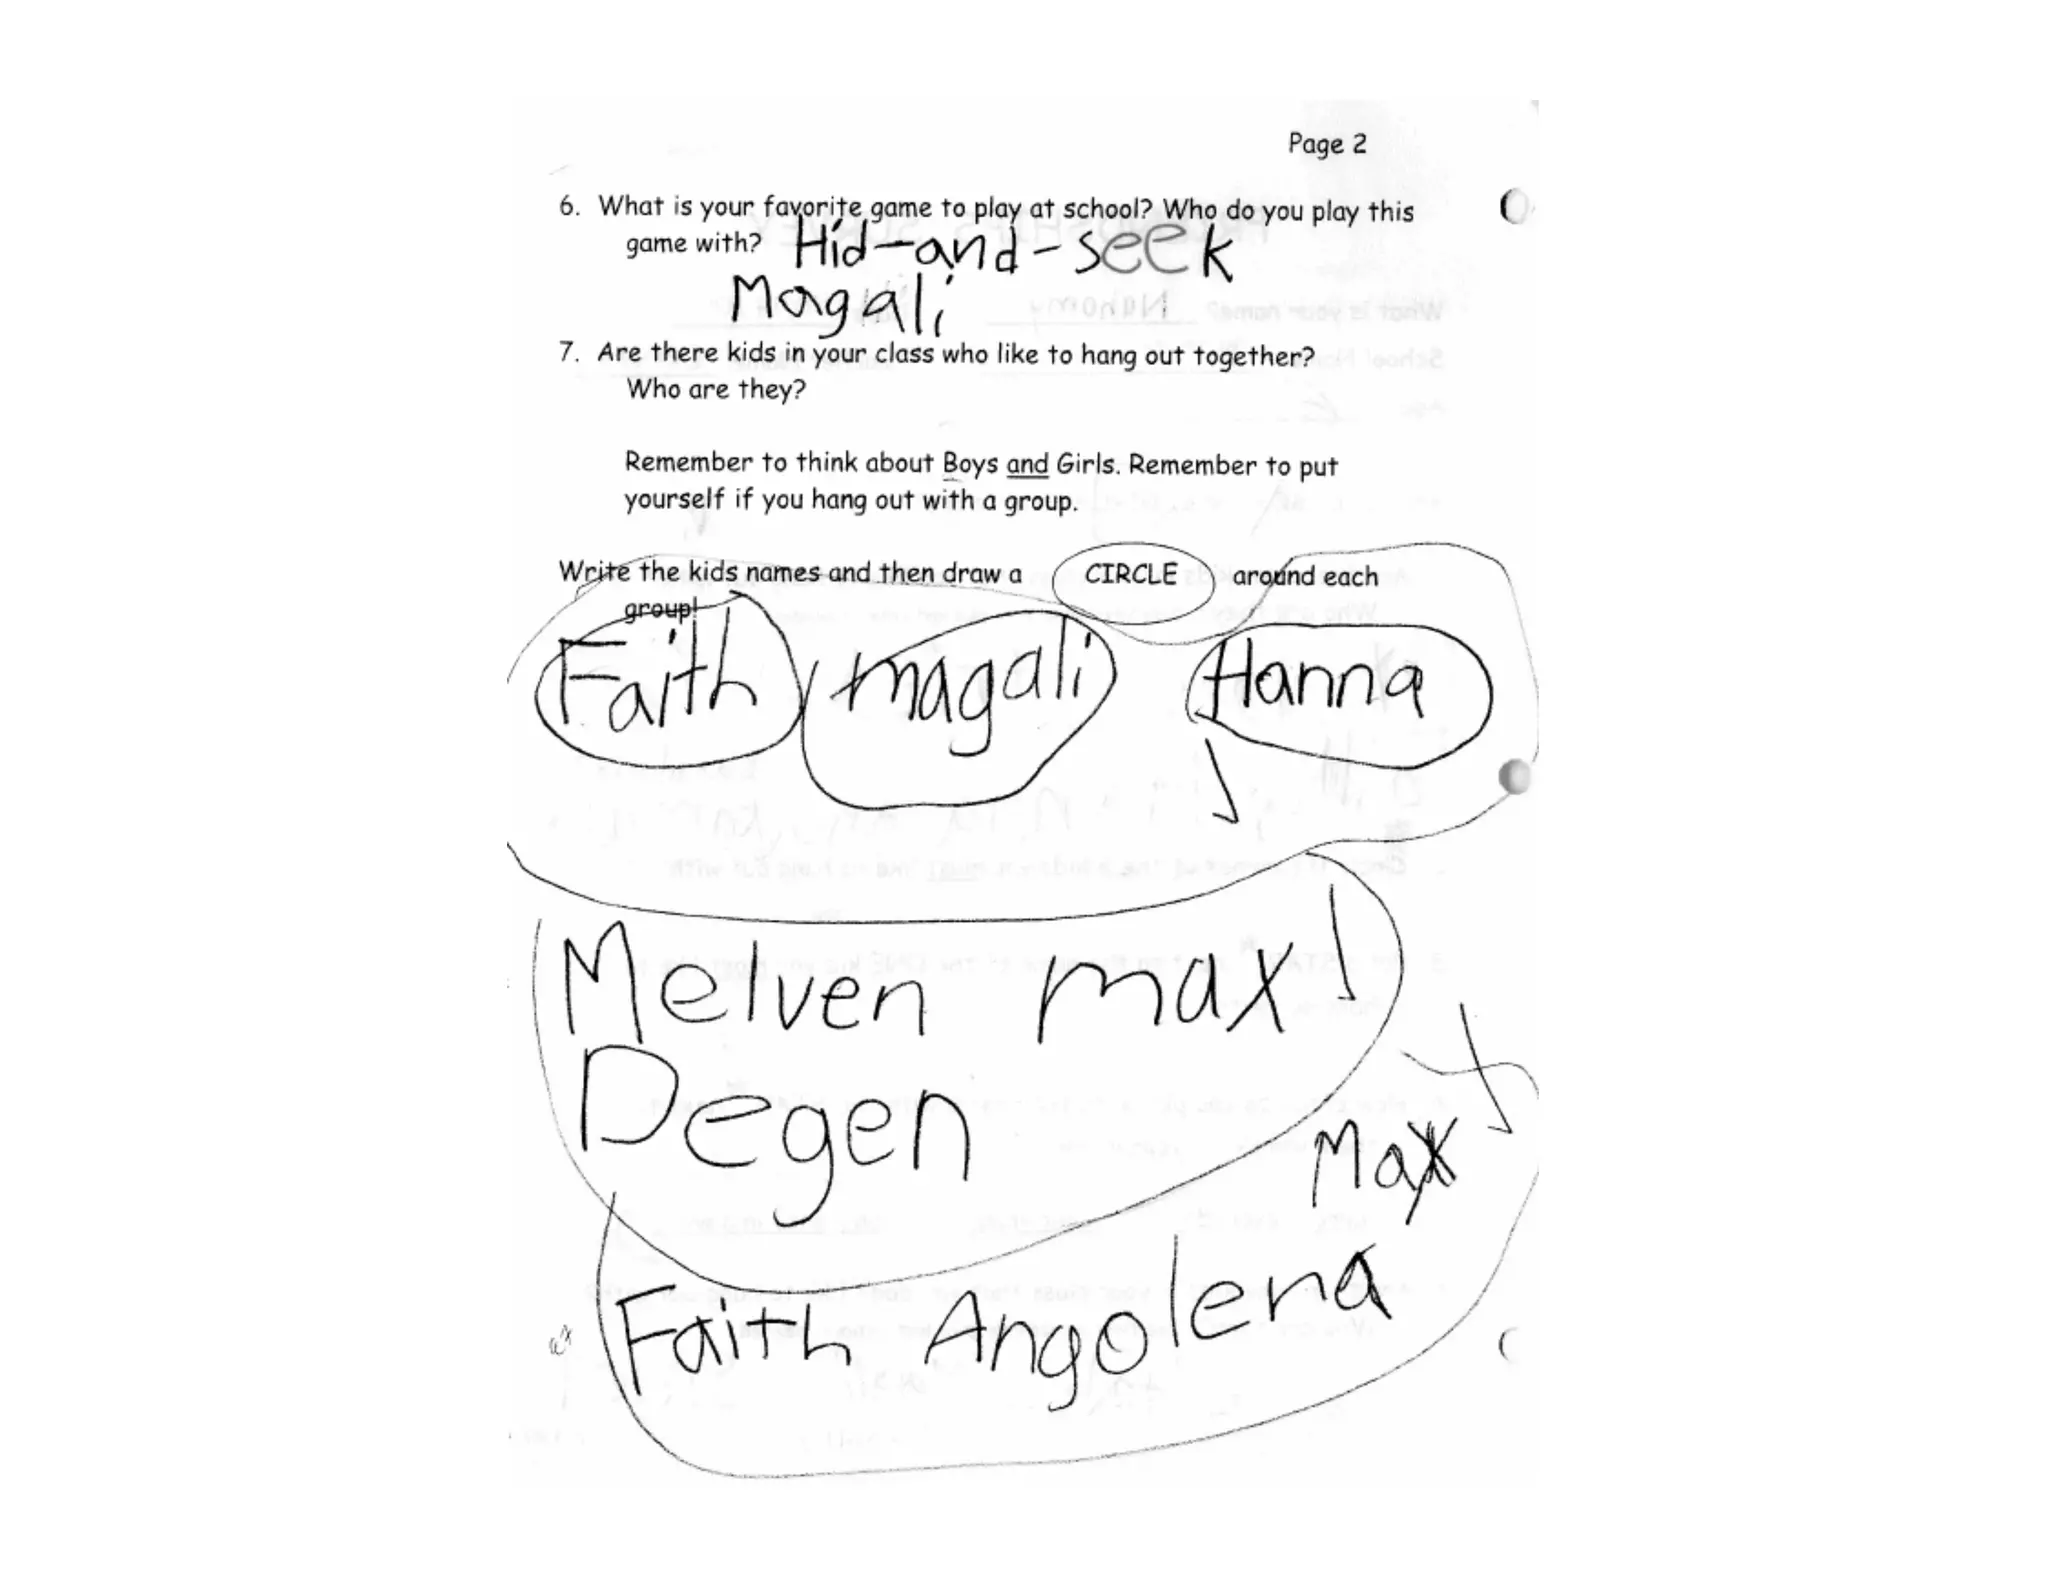 Page 2
6. What is your favorite game to play at school? Who do you play this
game with? Hid-and-seek
Magali
7. Are there kids in your class who like to hang out together?
Who are they?
Remember to think about Boys and Girls. Remember to put
yourself if you hang out with a group.
Write the kids names and then draw a CIRCLE around each
group!
Faith magali Hanna
Melven max
Degen
Max
Faith Angolena